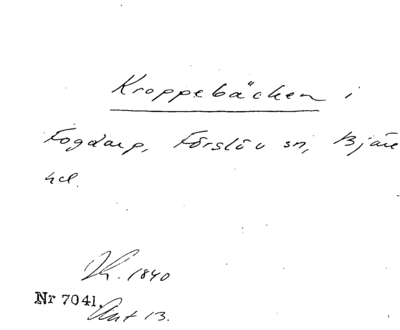 Kroppebäcken i
Fogdarp, Förslöv sn, Bjäre
hd.
1840
Nr 7041.
Ant 13.